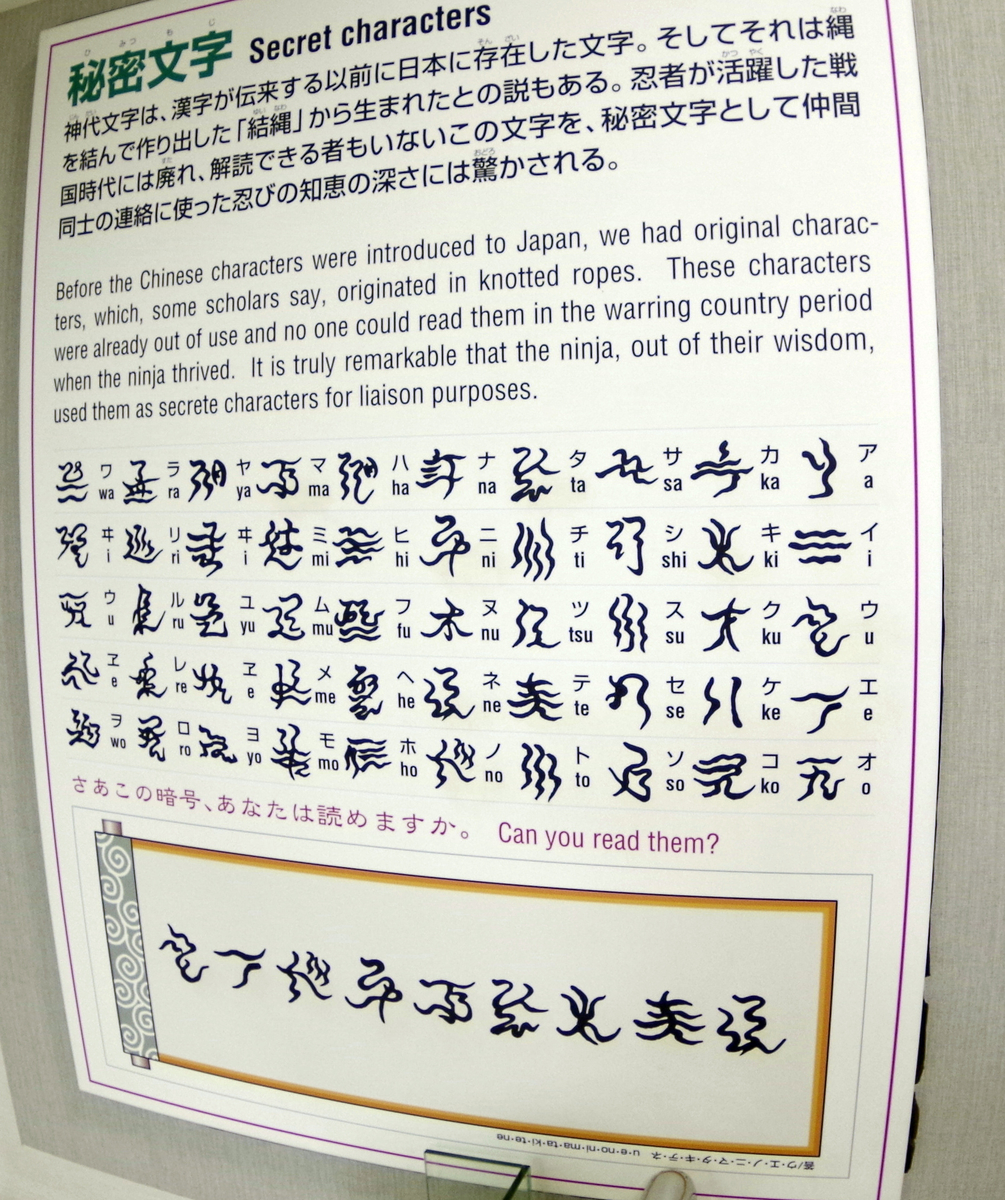 ひ みつ も じ
秘密文字 Secret characters
そん ざい なわ
神代文字は、漢字が伝来する以前に日本に存在した文字。そしてそれは縄
ゆい なわ かつ やく
を結んで作り出した「結縄」から生まれたとの説もある。忍者が活躍した戦
すた
国時代には廃れ、解読できる者もいないこの文字を、秘密文字として仲間
おどろ
同士の連絡に使った忍びの知恵の深さには驚かされる。
Before the Chinese characters were introduced to Japan, we had original charac-
ters, which, some scholars say, originated in knotted ropes. These characters
were already out of use and no one could read them in the warring country period
when the ninja thrived. It is truly remarkable that the ninja, out of their wisdom,
used them as secrete characters for liaison purposes.
ワ ラ ヤ マ ハ ナ タ サ カ ア
wa ra ya ma ha na ta sa ka a
ヰ リ ヰ ミ ヒ ニ チ シ キ イ
i ri i mi hi ni ti shi ki i
ウ ル ユ ム フ ヌ ツ ス ク ウ
u ru yu mu fu nu tsu su ku u
ヱ レ ヱ メ ヘ ネ テ セ ケ エ
e re e me he ne te se ke e
ヲ ロ ヨ モ ホ ノ ト ソ コ オ
wo ro yo mo ho no to so ko o
さあこの暗号、あなたは読めますか。 Can you read them?
答/ウ・エ・ノ・ニ・マ・タ・キ・テ・ネ u・e・no・ni・ma・ta・ki・te・ne